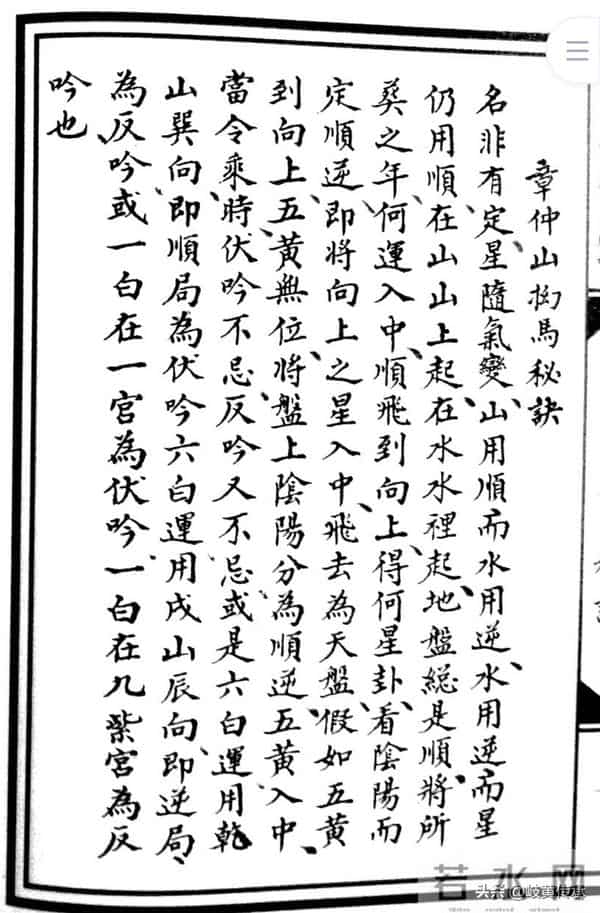 章仲山抝馬秘訣
名非有定星隨氣變、山用順而水用逆、水用逆而星
仍用順、在山山上起、在水水裡起、地盤縂是順、將所
葵之年、何運入中、順飛到向上、得何星卦、看陰陽而
定順逆、即將向上之星入中、飛去為天盤、假如五黃
到向上、五黃無位、將盤上陰陽分為順逆、五黃入中、
當令乘時、伏吟不忌、反吟又不忌、或是六白運用乾
山巽向、即順局為伏吟、六白運用戌山辰向、即逆局、
為反吟、或一白在一宮為伏吟、一白在九紫宮為反
吟也
若水网
头条@岐黄传承